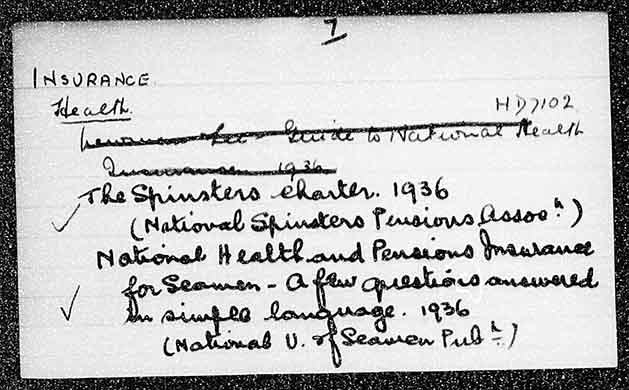 7
INSURANCE
Health.
HD7102
Lee Guide to National Health
Insurance 1936
The Spinsters charter. 1936
(National Spinsters Pensions Assocn.)
National Health and Pensions Insurance
for Seamen - A few questions answered
in simple language. 1936
(National U. of Seamen Publn.)